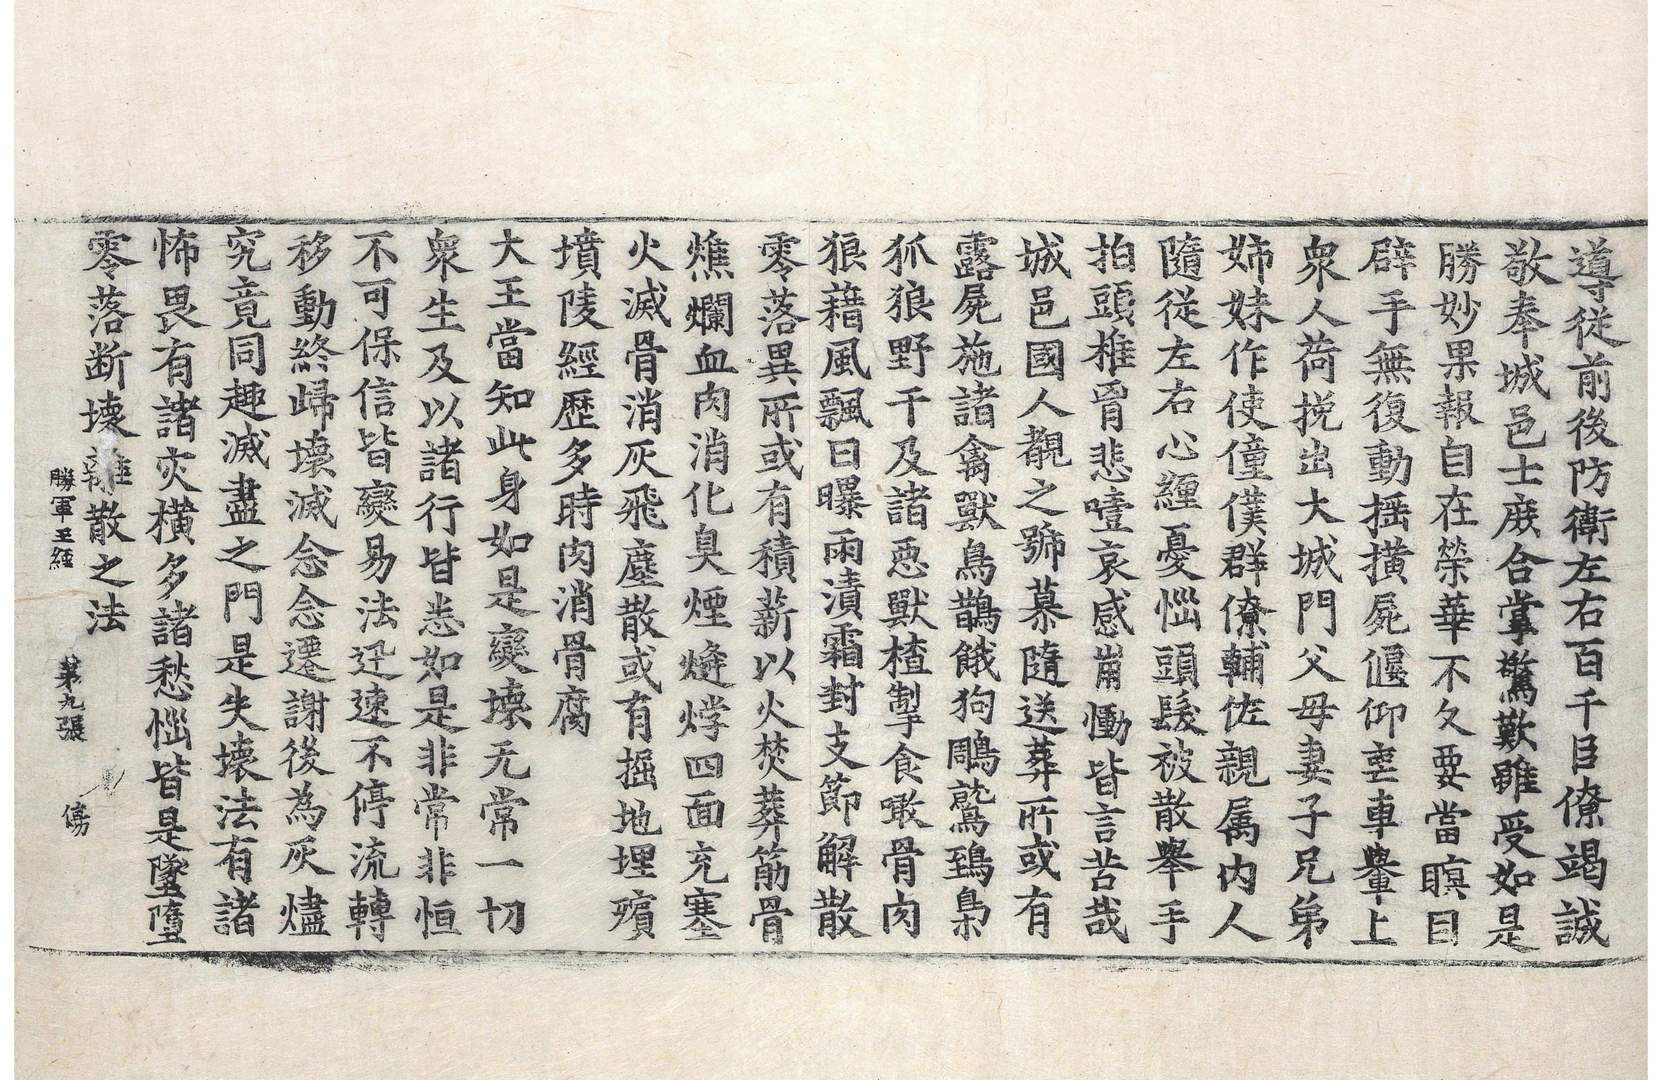 導從前後防衛左右百千臣僚竭誠
敬奉城邑士庶合掌驚歎雖受如是
勝妙果報自在榮華不久要當瞑目
辟手無復動搖橫屍偃仰喪車轝上
衆人荷挽出大城門父母妻子兄弟
姉妹作使僮僕群僚輔佐親属內人
隨從左右心纒憂惱頭髮被散舉手
拍頭椎胷悲噎哀感崩慟皆言苦哉
城邑國人覩之號慕隨送葬所或有
露屍施諸禽獸鳥鵲餓狗鵰鷲鵄梟
狐狼野干及諸惡獸樝掣食噉骨肉
狼藉風飄日曝雨漬霜封支節解散
零落異所或有積薪以火焚葬筋骨
燋爛血肉消化臭煙㷭㶿四面充塞
火滅骨消灰飛塵散或有掘地埋殯
墳陵經歷多時肉消骨腐
大王當知此身如是變壞无常一切
衆生及以諸行皆悉如是非常非恒
不可保信皆變易法迅速不停流轉
移動終歸壞滅念念遷謝後為灰燼
究竟同趣滅盡之門是失壞法有諸
怖畏有諸灾橫多諸愁惱皆是墜墮
零落断壞離散之法
勝軍王經 第九張 傍